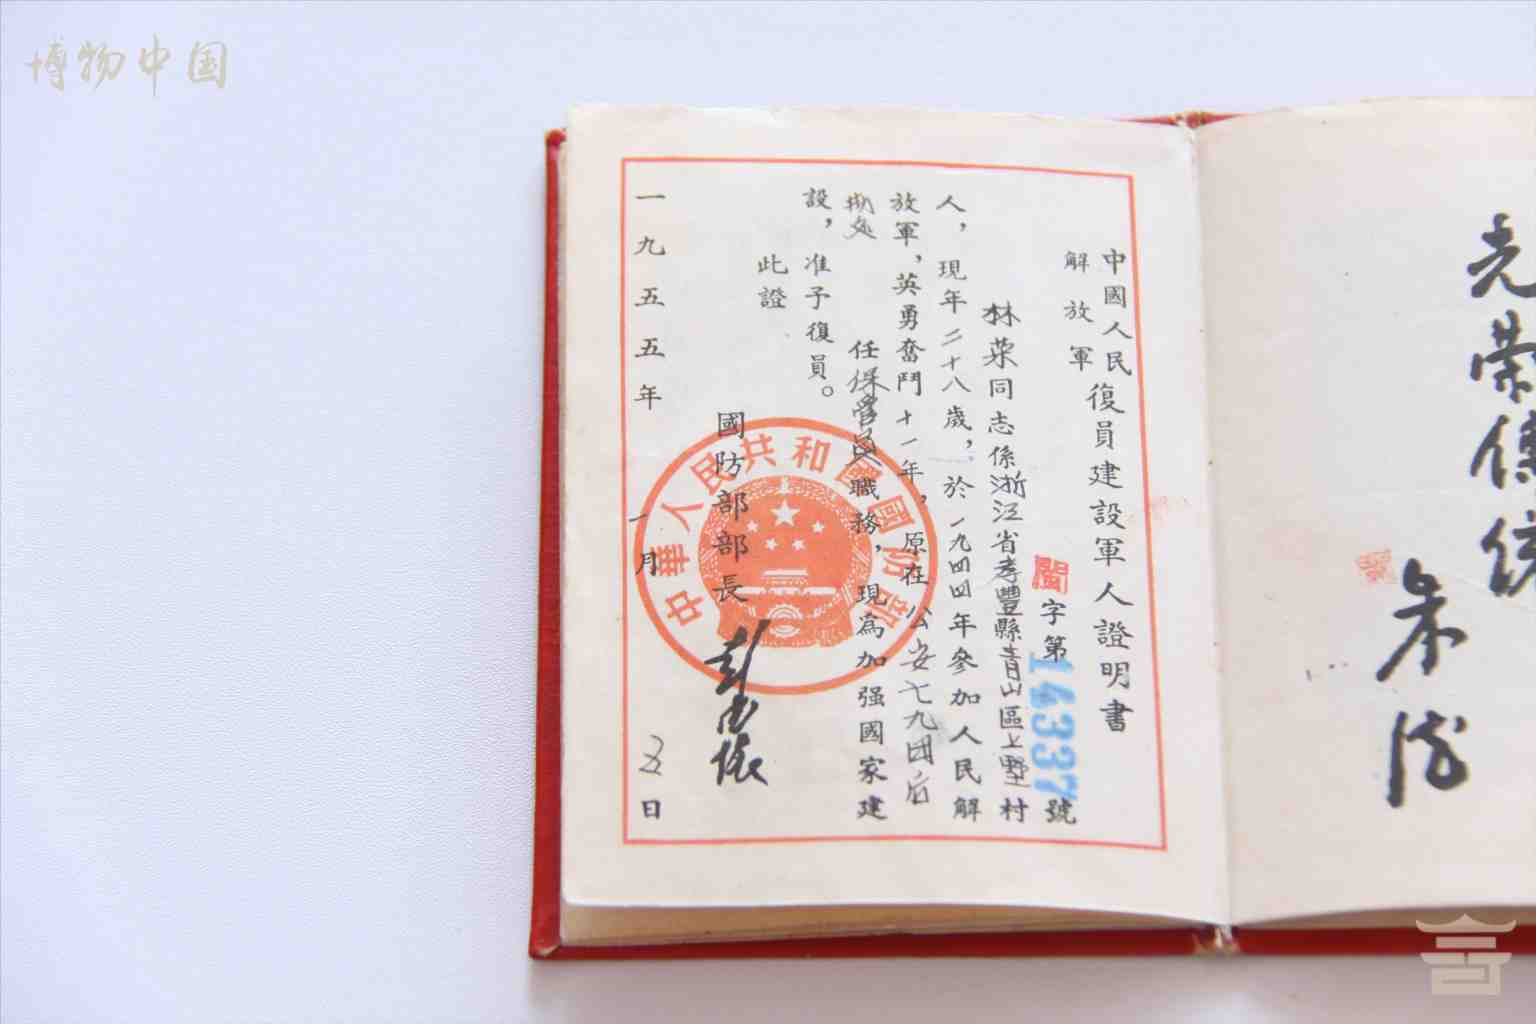 博物中国
光荣傳統
朱德
中國人民
解放軍
復員建設軍人證明書
閩字第14337號
林荣同志係浙江省孝豐縣青山區上墅村
人，現年二十八歲，於一九四四年參加人民解
放軍，英勇奮鬥十一年，原在公安七九团后
勤处任保管員職務，現為加强國家建
設，准予復員。
此證
國防部部長彭德懷
中華人民共和國國防部
一九五五年一月五日